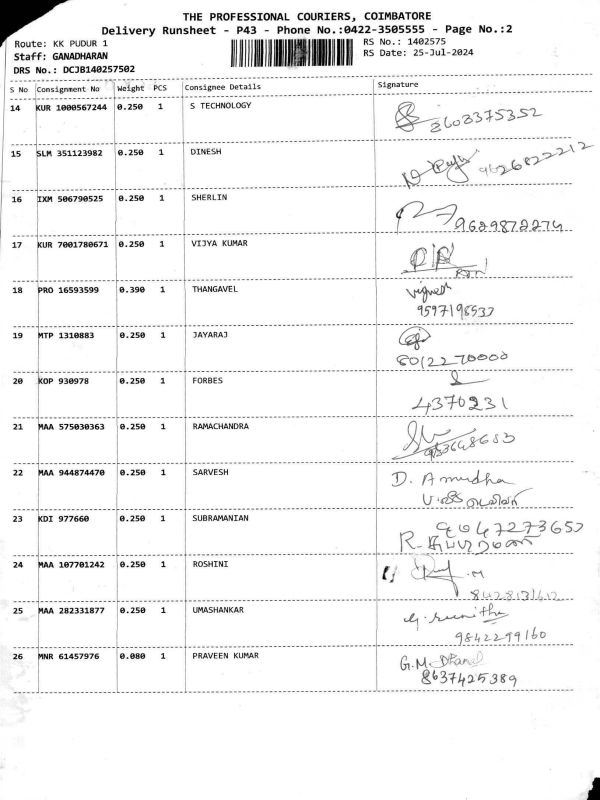 THE PROFESSIONAL COURIERS, COIMBATORE
Delivery Runsheet - P43 - Phone No.:0422-3505555 - Page No.:2
Route: KK PUDUR 1
RS No.: 1402575
Staff: GANADHARAN
RS Date: 25-Jul-2024
DRS No.: DCJB140257502
S No Consignment No Weight PCS Consignee Details Signature
14 KUR 1000567244 0.250 1 S TECHNOLOGY
8603375352
15 SLM 351123982 0.250 1 DINESH
9626822212
16 IXM 506790525 0.250 1 SHERLIN
9629872274
17 KUR 7001780671 0.250 1 VIJYA KUMAR
18 PRO 16593599 0.390 1 THANGAVEL
Vignesh
9597198533
19 MTP 1310883 0.250 1 JAYARAJ
8012270000
20 KOP 930978 0.250 1 FORBES
4370231
21 MAA 575030363 0.250 1 RAMACHANDRA
22 MAA 944874470 0.250 1 SARVESH D. Amudha
23 KDI 977660 0.250 1 SUBRAMANIAN
9047273653
24 MAA 107701242 0.250 1 ROSHINI
25 MAA 282331877 0.250 1 UMASHANKAR
9842299160
26 MNR 61457976 0.080 1 PRAVEEN KUMAR
8637425389